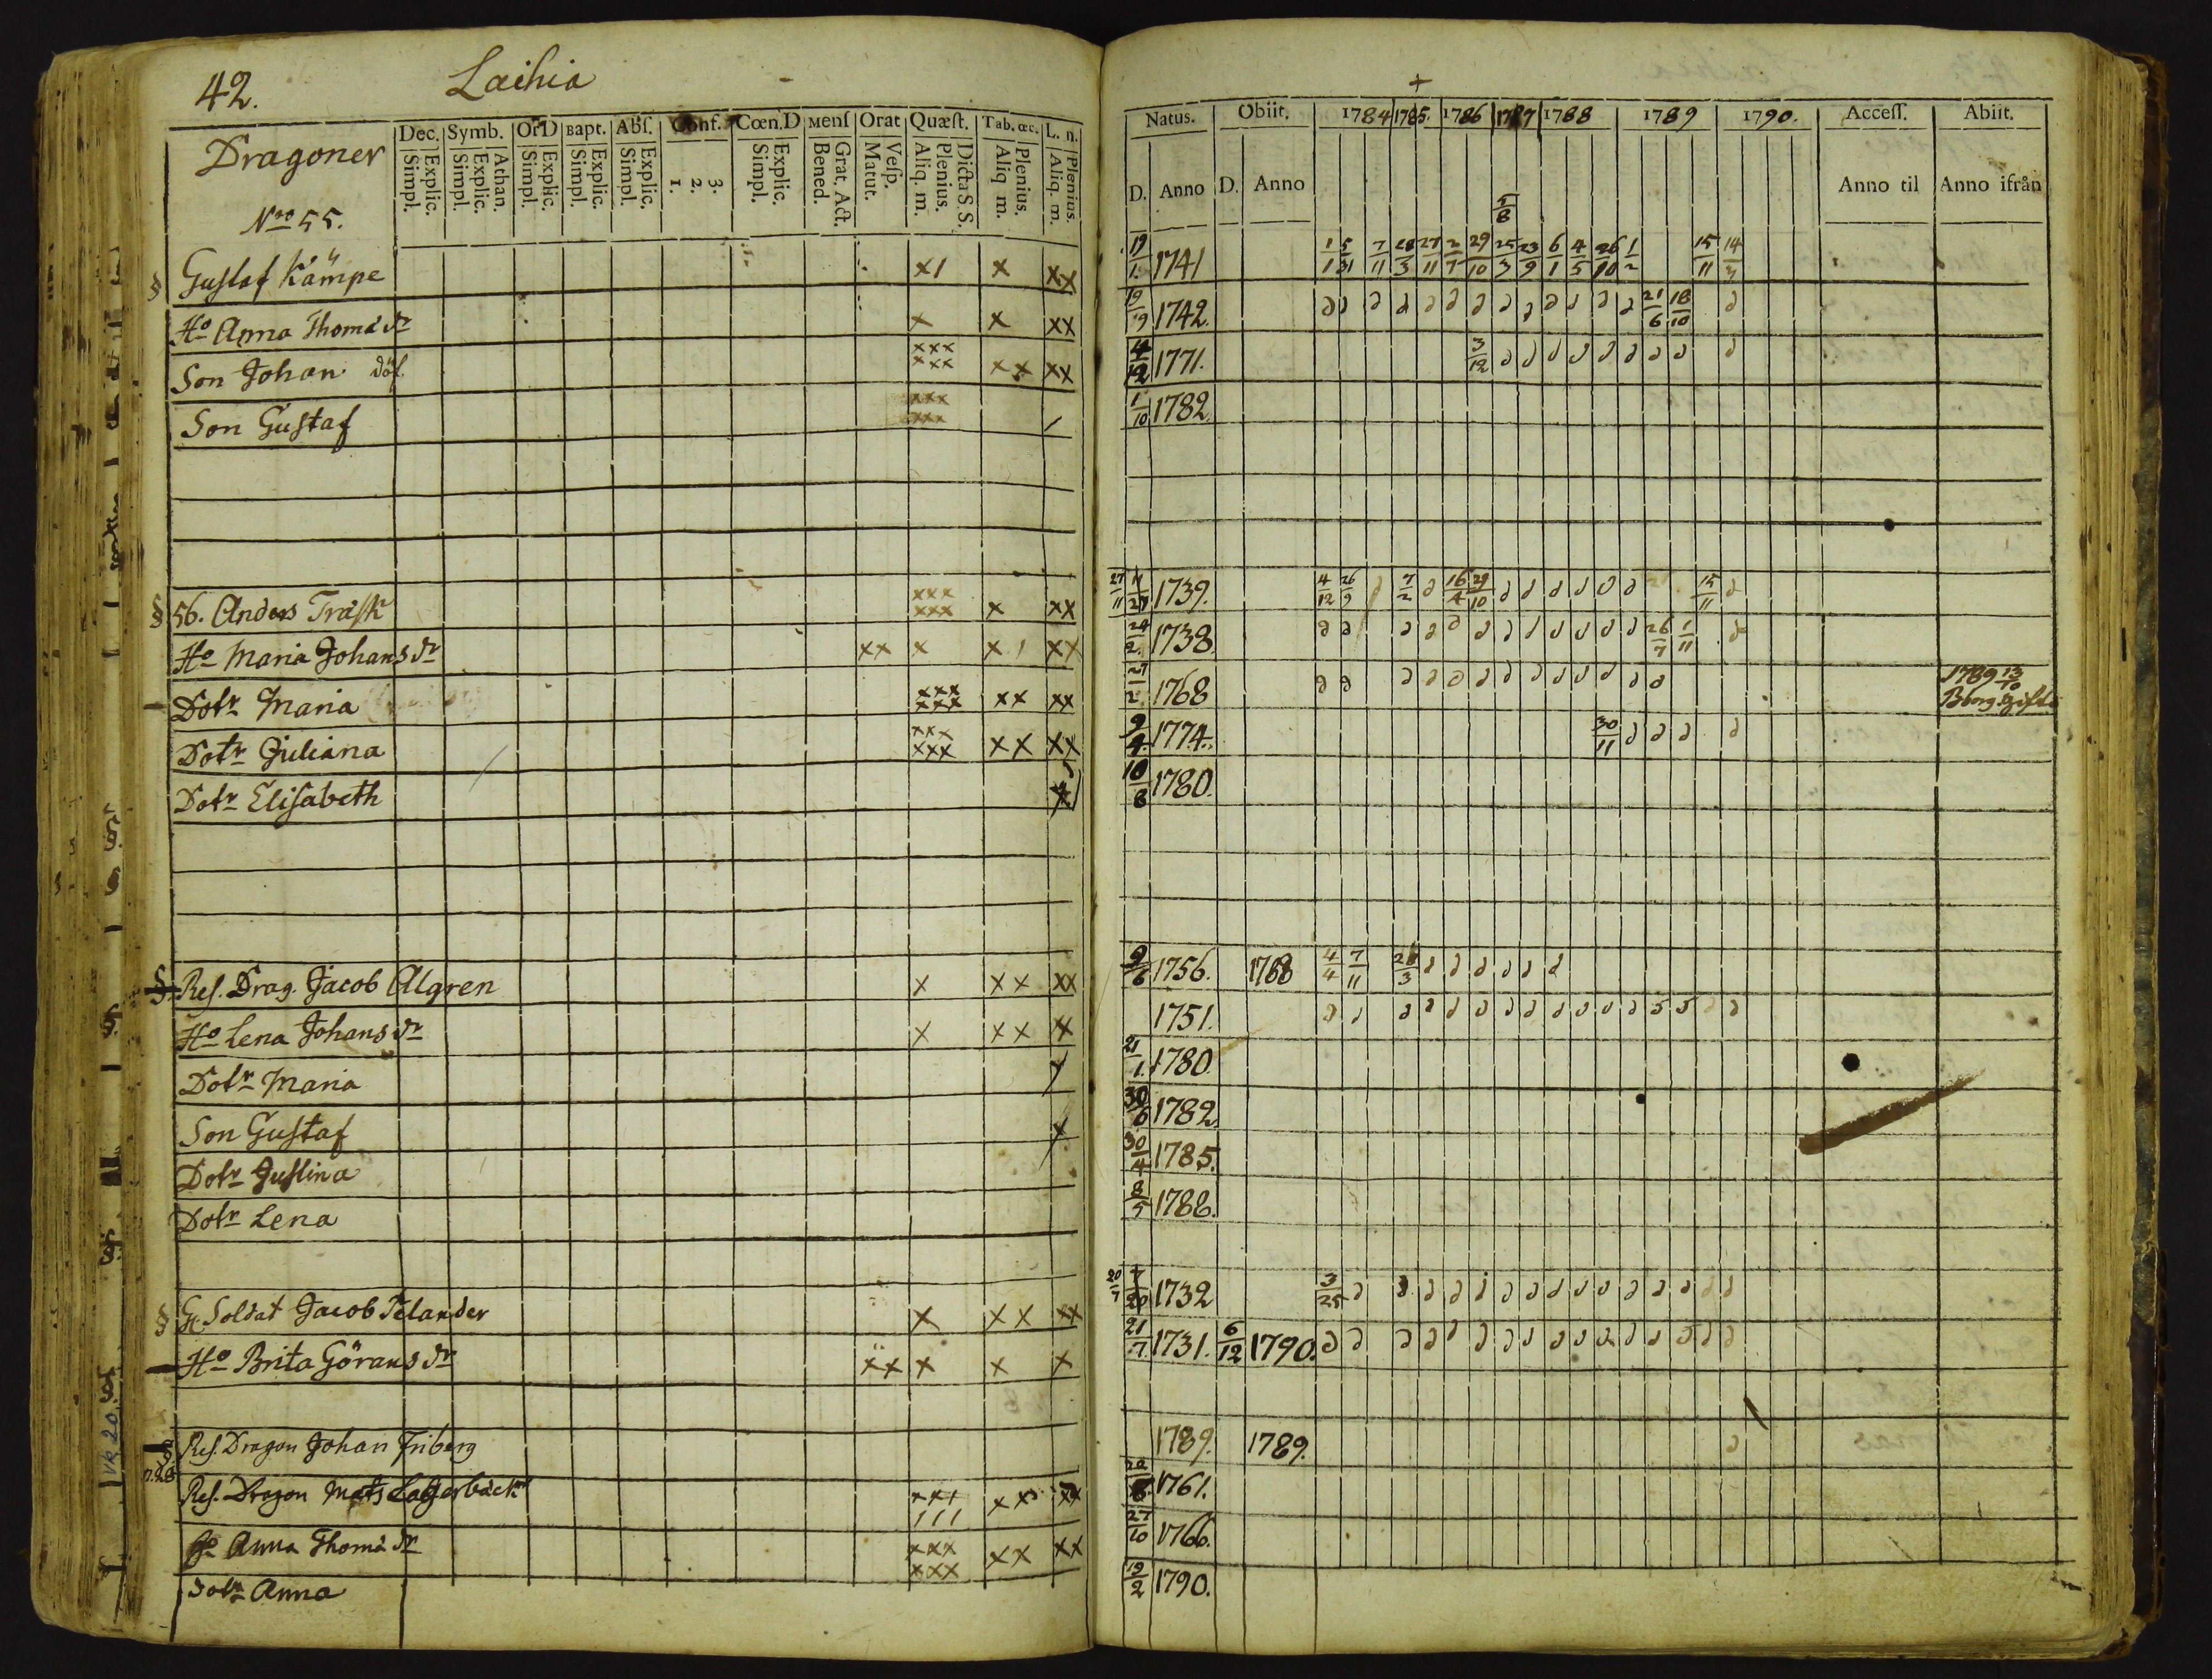 42. Laihia
Dec. Symb. OrD Bapt. Abſ. Conf. Cœn.D Menſ Orat Quæſt. Tab. œc. L. n.
Simpl. Explic. Simpl. Explic. Athan. Simpl. Explic. Simpl. Explic. Simpl. Explic. 1. 2. 3. Simpl. Explic. Bened. Grat. Act. Matut. Veſp. Aliq. m. Plenius. Dicta S. S. Aliq m. Plenius. Aliq. m. Plenius.
Dragoner
Nro 55.
§ Gustaf Kämpe x1 x xx
Ho Anna Thomä dr x x xx
Son Johan döf. xxx xxx xx xx
Son Gustaf xxx xxx /
§ 56. Anders Träsk xxx xxx x xx
Ho Maria Johans dr xx x x1 xx
Dotr Maria xxx xxx xx xx
Dotr Juliana xxx xxx xx xx
Dotr Elisabeth x
§ Res. Drag. Jacob Algren x xx xx
Ho Lena Johans dr x xx x
Dotr Maria
Son Gustaf x
Dotr Justina
Dotr Lena
§ G. Soldat Jacob Telander x xx xx
Ho Brita Görans dr xx x x x
§ Res. Dragon Johan Friberg
Res. Dragon Mats Lagerbäck xx1 111 xx xx
Ho Anna Thomä dr xxx xxx xx xx
Dotr Anna
Natus. Obiit. 1784 1785. 1786 1787 1788 1789 1790. Acceſſ. Abiit.
D. Anno D. Anno Anno til Anno ifrån
5/8
19/1. 1741 7/11 28/3 27/11 29/10 25/3 23/9 6/1 4/5 26/10 1/2 15/11
19/9 1742. 21/6 18/10
4/12 1771. 3/12
1/10 1782.
27/11 1739. 4/12 26/9 7/2 16/4 29/10 15/11
24/2. 1738. 26/7 1/11
27/2. 1768 1789 13/10
Bborg. gift
9/4. 1774. 30/11
10/8 1780.
9/6 1756. 1788 4/4 7/11 28/3
1751.
21/1. 1780.
30/6 1782.
30/4 1785.
8/5 1788.
20/7 1732 3/25
21/7. 1731. 6/12 1790.
1789. 1789.
1761.
27/10 1766.
19/2 1790.